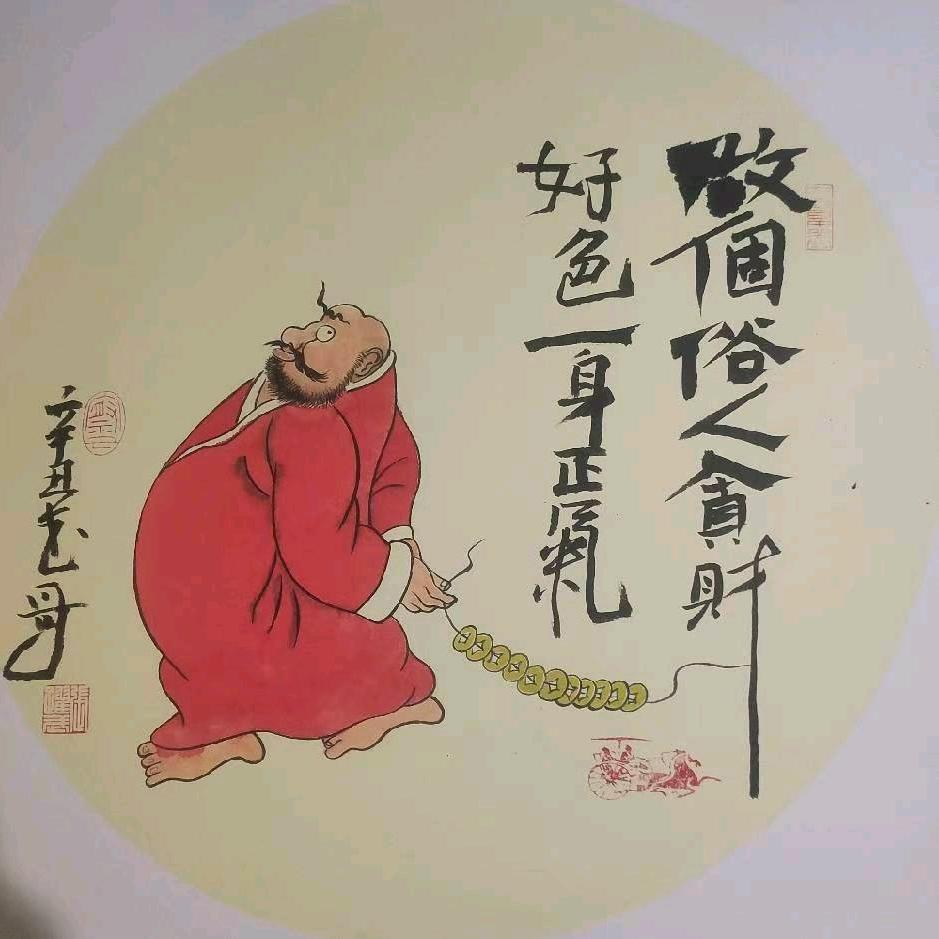 做個俗人貪財
好色一身正氣
辛丑哥